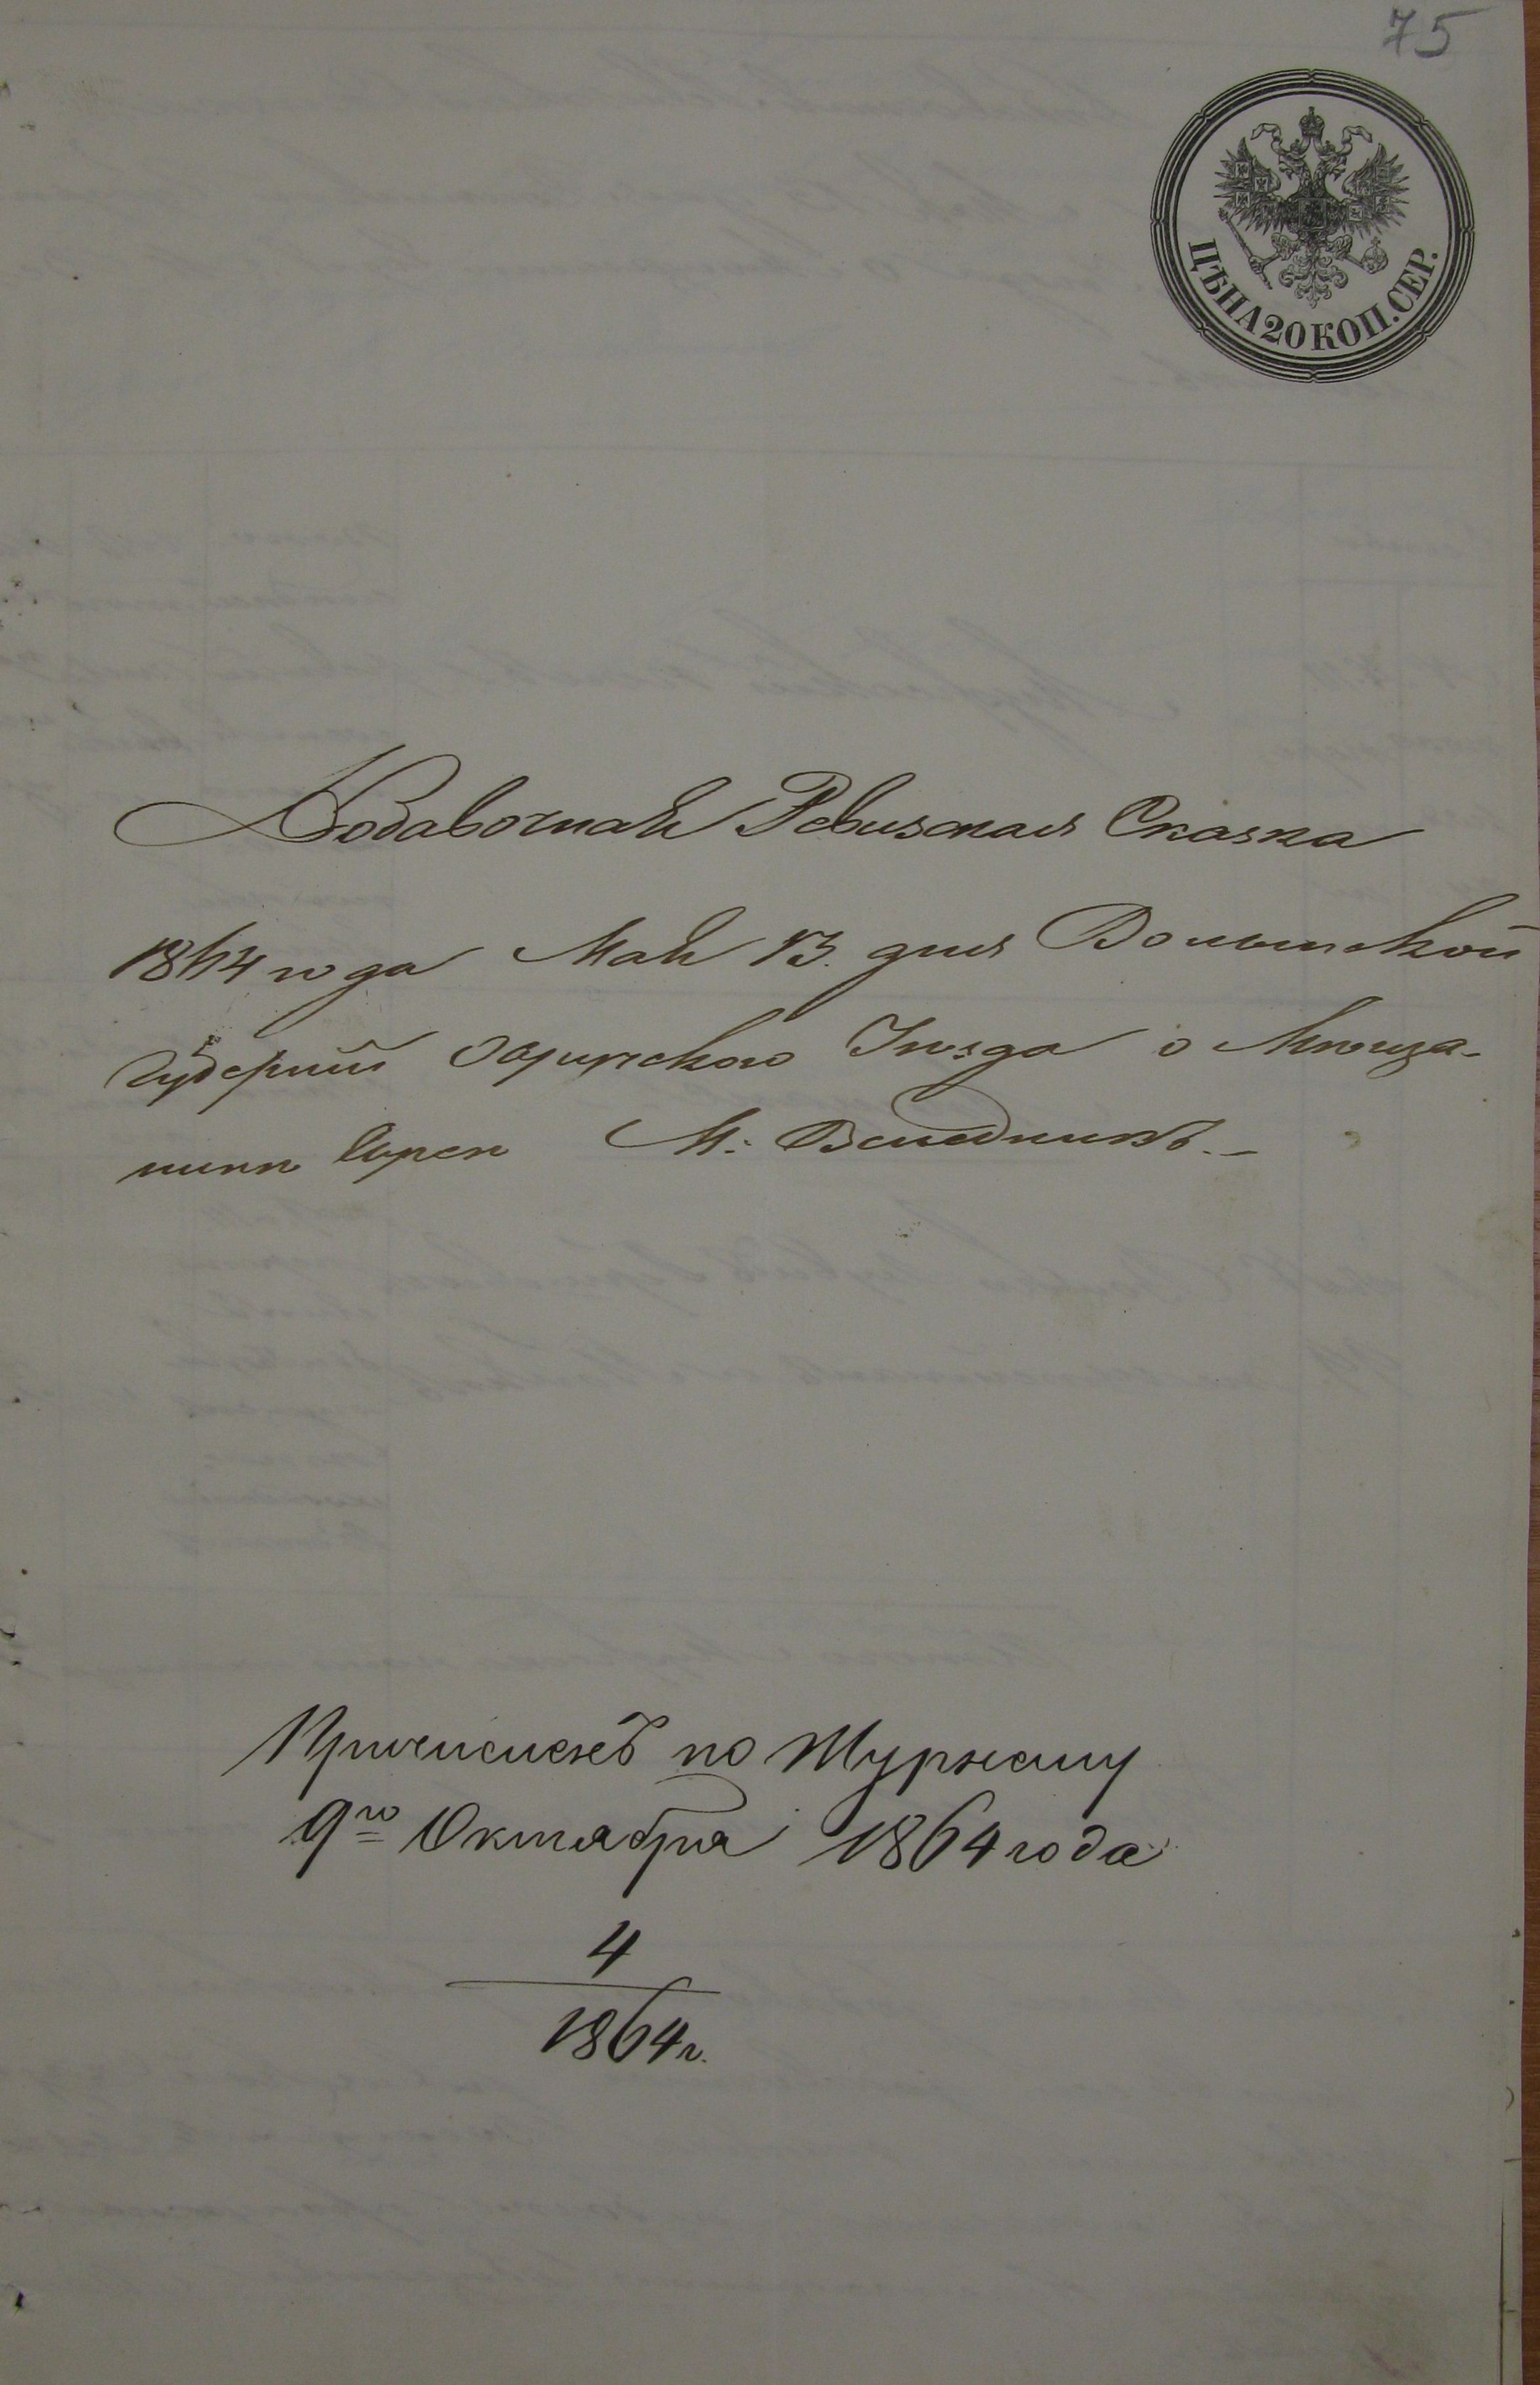 75
ЦѢНА 20 КОП. СЕР.
Добавочная Ревизская Сказка
1864 года Мая 13. дня Волынской
Губерніи Овручскаго Уѣзда о Мѣща-
нинѣ Евреѣ М:
Причисленъ по Журналу
9го Октября 1864 года
4
1864 г.